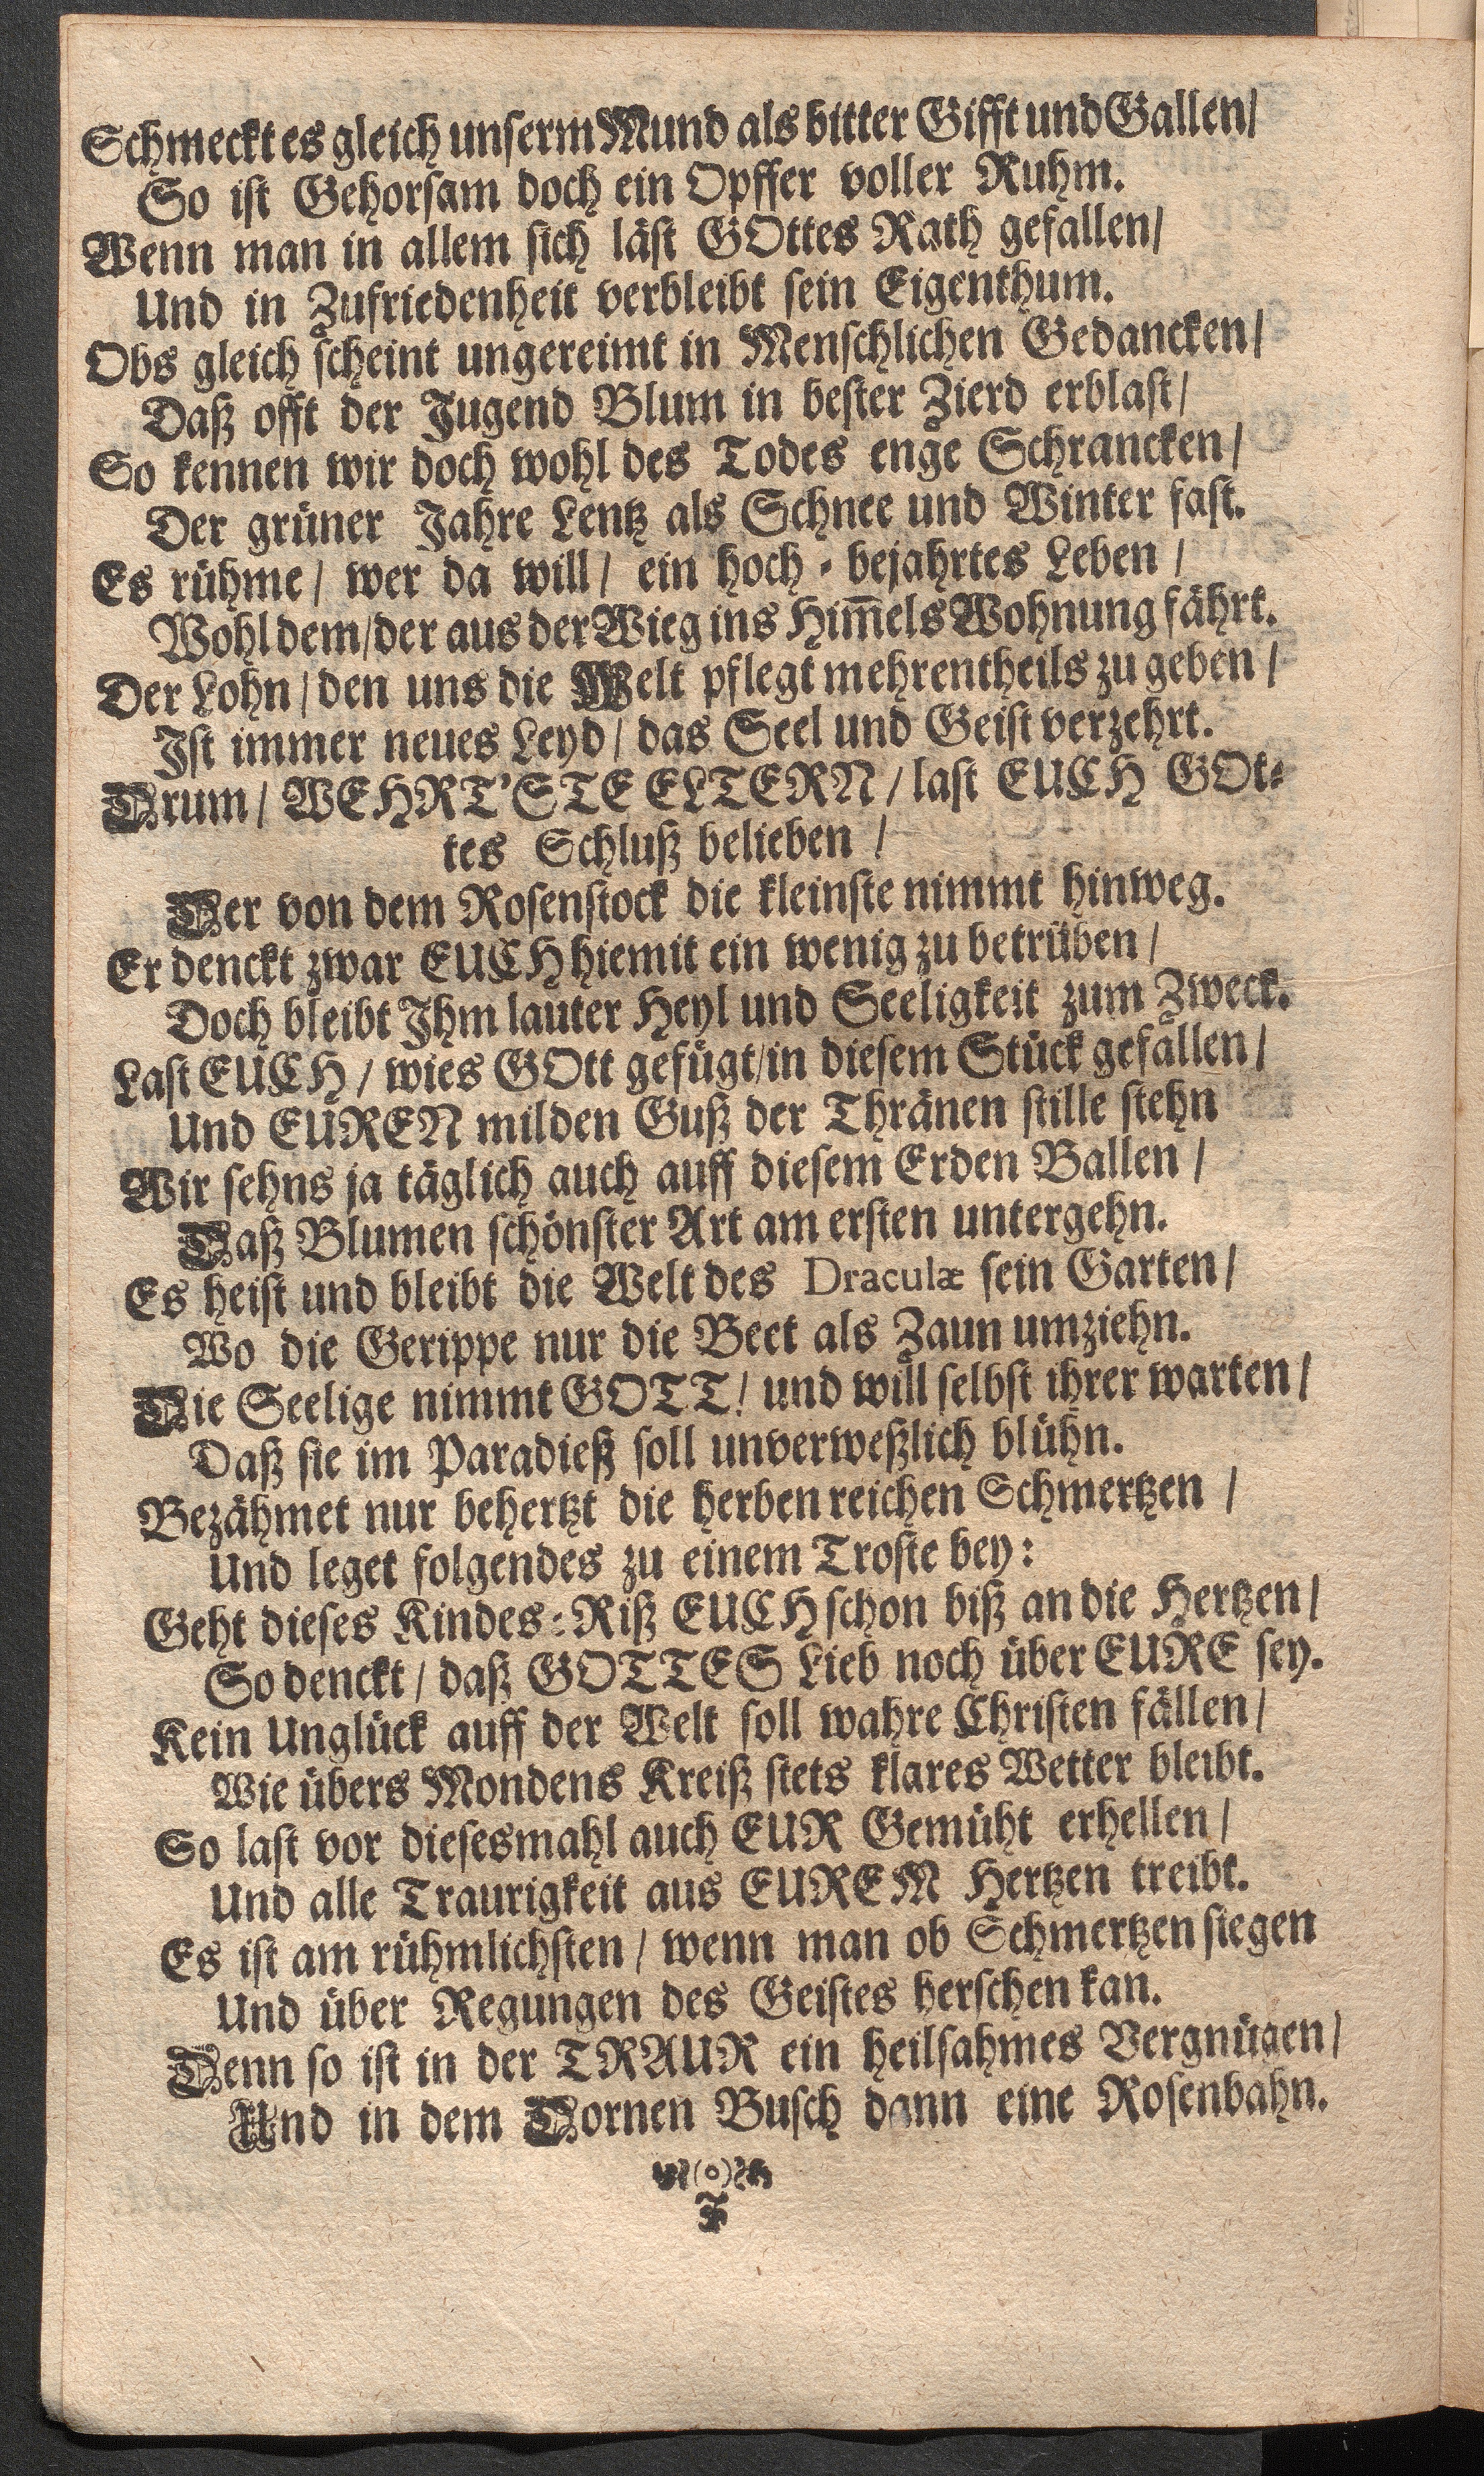 Schmeckt es gleich unserm Mund als bitter Gifft und Gallen/
So ist Gehorsam doch ein Opffer voller Ruhm.
Wenn man in allem sich läst GOttes Rath gefallen/
Und in Zufriedenheit verbleibt sein Eigenthum.
Obs gleich scheint ungereimt in Menschlichen Gedancken/
Daß offt der Jugend Blum in bester Zierd erblast/
So kennen wir doch wohl des Todes enge Schrancken/
Der grüner Jahre Lentz als Schnee und Winter fast.
Es rühme/ wer da will/ ein hoch-bejahrtes Leben/
Wohl dem/ der aus der Wieg ins Him̅els Wohnung fährt.
Der Lohn/ den uns die Welt pflegt mehrentheils zu geben/
Ist immer neues Leyd/ das Seel und Geist verzehrt.
Drum/ WEHRT'STE ELTERN/ last EUCH GOt-
tes Schluß belieben/
Der von dem Rosenstock die kleinste nimmt hinweg.
Er denckt zwar EUCH hiemit ein wenig zu betrüben/
Doch bleibt Ihm lauter Heyl und Seeligkeit zum Zweck.
Last EUCH/ wies GOtt gefügt/ in diesem Stück gefallen/
Und EUREN milden Guß der Thränen stille stehn
Wir sehns ja täglich auch auff diesem Erden Ballen/
Daß Blumen schönster Art am ersten untergehn.
Es heist und bleibt die Welt des Draculæ sein Garten/
Wo die Gerippe nur die Beet als Zaun umziehn.
Die Seelige nimmt GOTT/ und will selbst ihrer warten/
Daß sie im Paradieß soll unverweßlich blühn.
Bezähmet nur behertzt die herben reichen Schmertzen/
Und leget folgendes zu einem Troste bey:
Geht dieses Kindes-Riß EUCH schon biß an die Hertzen/
So denckt/ daß GOTTES Lieb noch über EURE sey.
Kein Unglück auff der Welt soll wahre Christen fällen/
Wie übers Mondens Kreiß stets klares Wetter bleibt.
So last vor diesesmahl auch EUR Gemüht erhellen/
Und alle Traurigkeit aus EUREM Hertzen treibt.
Es ist am rühmlichsten/ wenn man ob Schmertzen siegen
Und über Regungen des Geistes herschen kan.
Denn so ist in der TRAUR ein heilsahmes Vergnügen/
Und in dem Dornen Busch dann eine Rosenbahn.